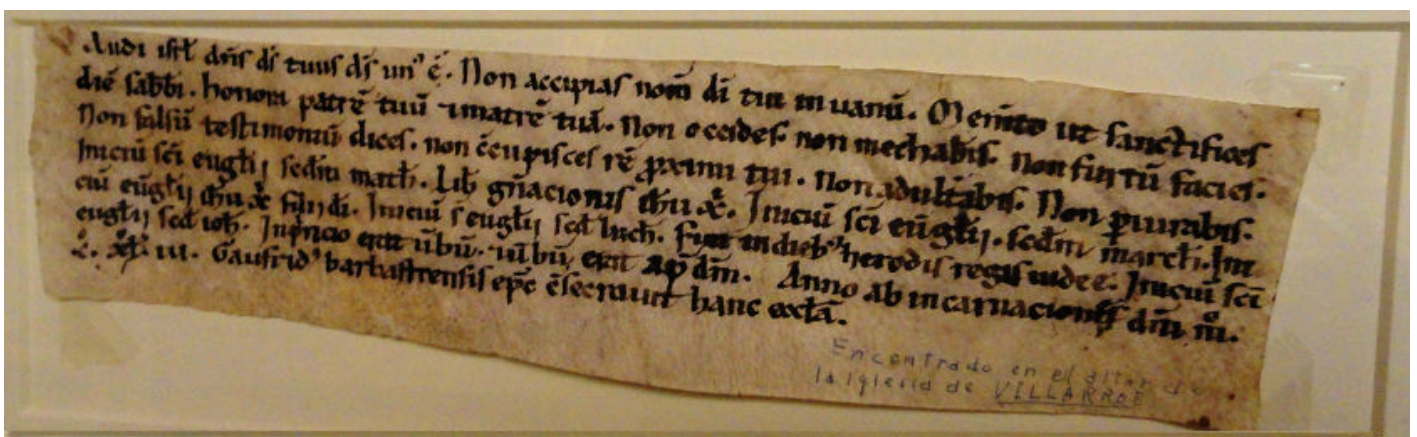 Audi isrł dn̄s ds̄ tuus ds̄ unꝰ ē. Non accipias nom̄ dī tui in uanū. Memto ut sanctifices
diē sabbi. honora patrē tuū ⁊ matrē tuā. Non occides. non mechabis. non furtū facies.
Non falsū testimoniū dices. non c̄cupisces rē ꝓximi tui. Non adult̄abis. Non ꝑiurabis.
Iniciū sc̄i euḡłij sc̄dm math̄. Lib̄ gn̄acionis ih̄u xp̄i. Iniciū sc̄i euḡłij. sc̄dm march̄. Ini
ciū euḡłij ih̄u xp̄i filii dī. Iniciū s̄ euḡłij sc̄d luch̄. Fuit in diebꝰ herodis regis iudee. Iniciū sc̄i
euḡłij sc̄d ioh̄. In pͥncipio erat ūbū. ⁊ ūbū erat ap̄ dm̄. Anno ab incarnacionis dn̄i m̊.
c̊. iii. Gaufridꝰ barbastrensis ep̄c c̄secrauit hanc eccl̄ā.
Encontrado en el altar de
la iglesia de VILLARROE